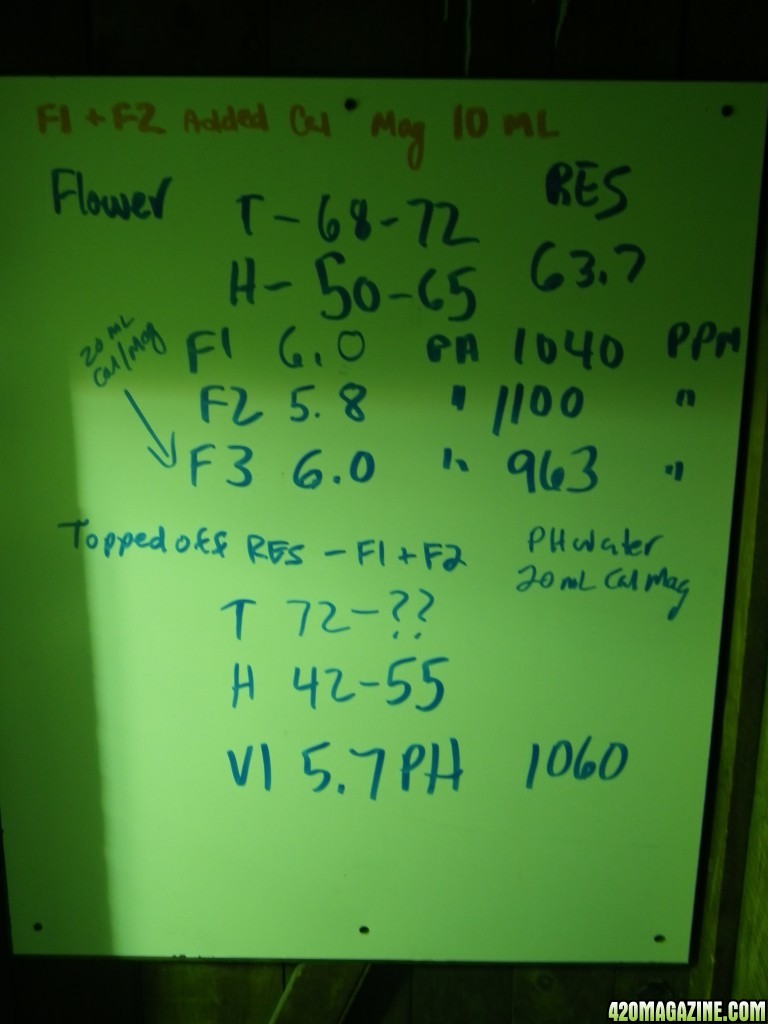 F1 + F2 Added Cal Mag 10 ML
Flower
RES
T - 68 - 72
H - 50 - 65
63.7
20 mL
Cal/Mag
F1 6.0 PH 1040 PPM
F2 5.8 " 1100 "
F3 6.0 " 963 "
Topped off RES - F1 + F2
PH water
20 mL Cal Mag
T 72 - ??
H 42 - 55
V1 5.7 PH 1060
420MAGAZINE.COM